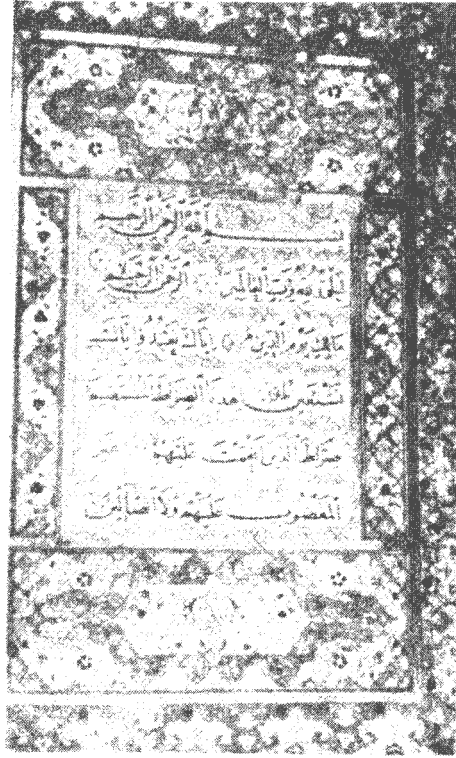 بسم الله الرحمن الرحيم
الحمد لله رب العالمين الرحمن الرحيم
مالك يوم الدين إياك نعبد وإياك
نستعين اهدنا الصراط المستقيم
صراط الذين أنعمت عليهم غير
المغضوب عليهم ولا الضالين